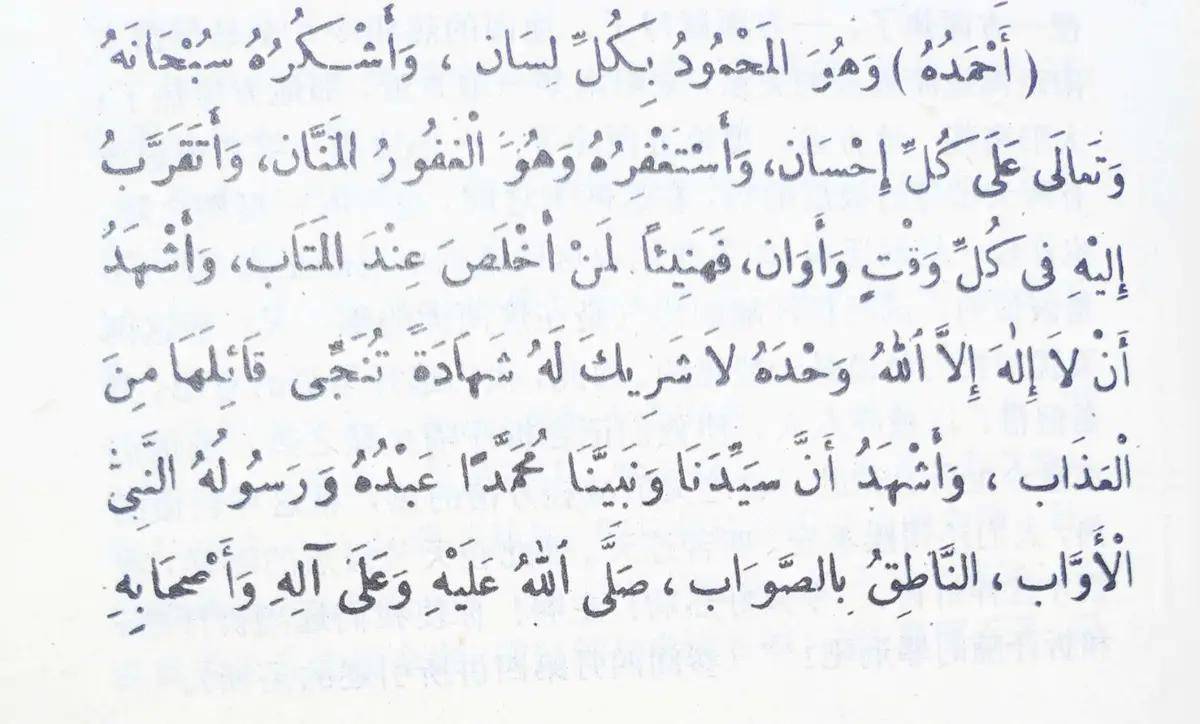 (أَحْمَدُهُ) وَهُوَ المَحْمُودُ بِكُلِّ لسان ، وَأَشْكُرُهُ سُبْحَانَهُ
وَتَعالَى عَلَى كُلِّ إِحْسان، وَأَسْتَغْفِرُهُ وَهُوَ الْغَفُورُ المَنَّان، وَأَتَقَرَّبُ
إِلَيْهِ فى كُلِّ وَقْتٍ وَأَوَان، فَهَنِيئاً لَمِنْ أَخْلَصَ عِنْدَ المَتَاب، وَأَشْهَدُ
أَنْ لاَ إِلٰهَ إِلاَّ اللهُ وَحْدَهُ لاَ شَرِيكَ لَهُ شَهَادَةً تُنَجِّى قَائِلَهَا مِنَ
الْعَذَاب ، وَأَشْهَدُ أَنَّ سَيِّدَنَا وَنَبِيَّنَا مُحَمَّدًا عَبْدُهُ وَرَسُولُهُ النَّبِىُّ
الْأَوَّاب ، النَّاطِقُ بِالصَّوَاب ، صَلَّى اللهُ عَلَيْهِ وَعَلَى آلِهِ وَأَصْحَابِهِ